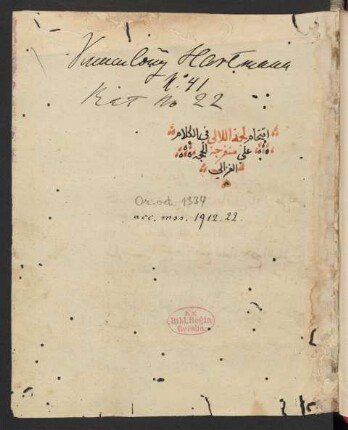 Sammlung Hartmann
No 41
Kat No 22
اقتحام لجة اللالي في الكلام
علي منفرجة للحجة
الغزالي
Or. oct. 1339
acc. mss. 1912. 22.
EX
Bibl. Regia
Berolin.